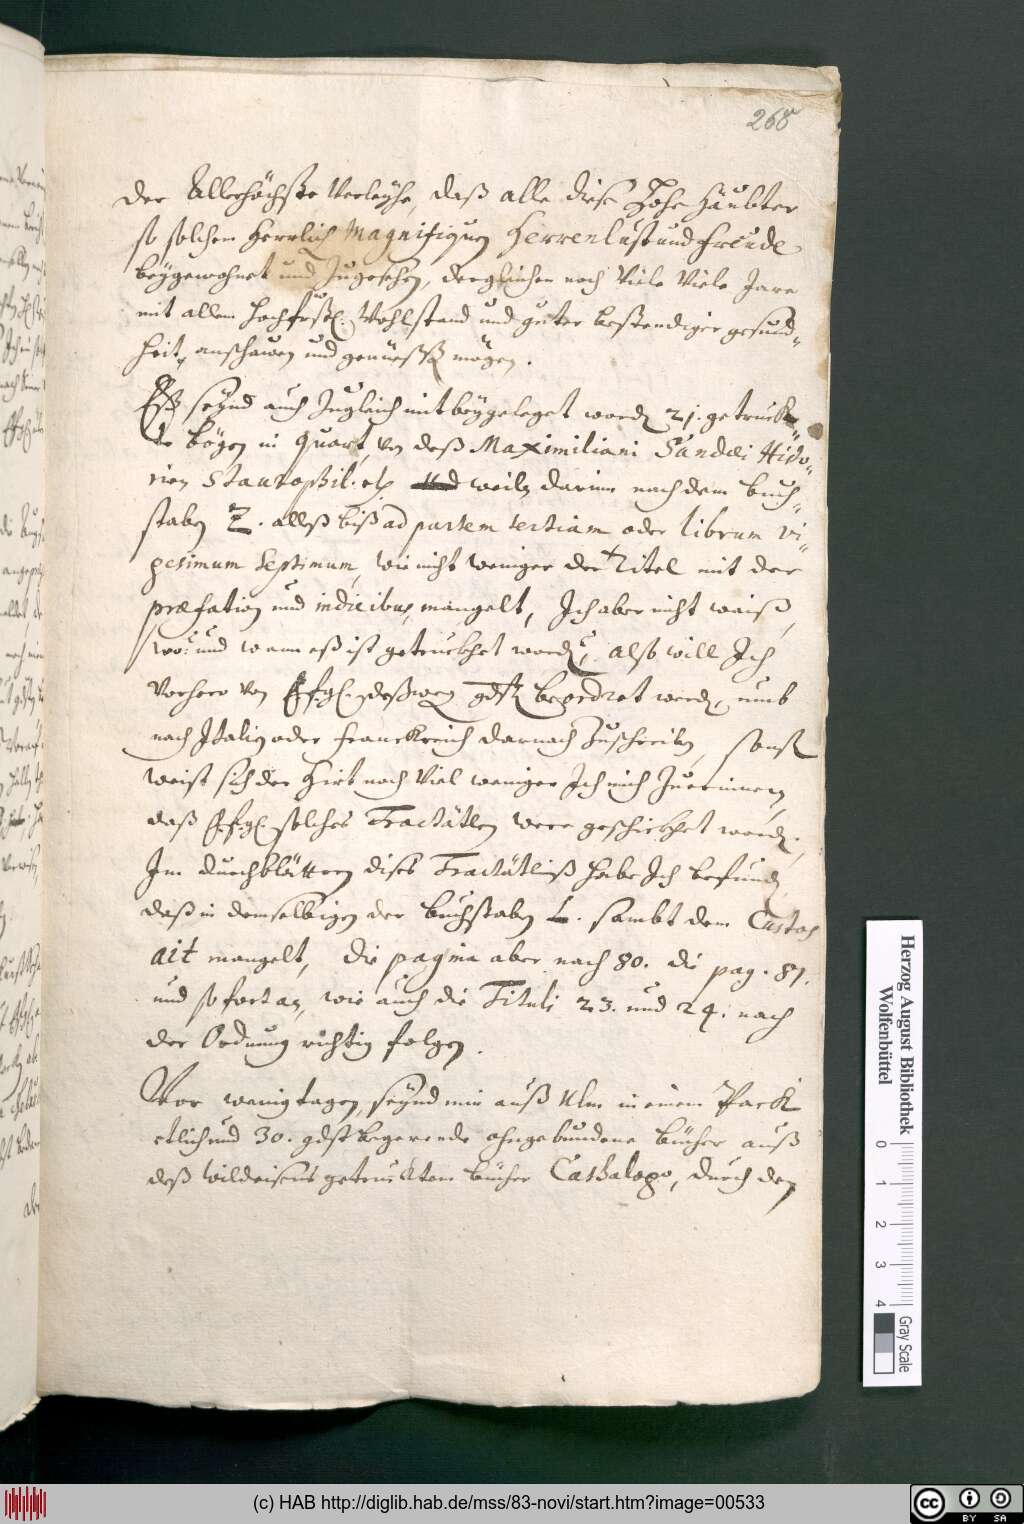 268
Der Allerhöchste Verleyhe, daß alle dise Hohe Häubter
so solchen Herrlich Magnifiquen Herrenlust und freude
beygewohnet und Zugesehen, dergleichen noch Viele Viele Jare
mit allem hochfrstl. Wohlstand und guter bestendiger gesund-
heit, anschawen und genüessen mögen.
Eß seynd auch Zugleich mit beygeleget worden 21. getruck-
te bögen in quart, von deß Maximiliani Sandæi
Staurophil. etc. weiln darinn nach dem buch-
staben Z. alles biß ad partem tertiam oder librum vi-
gesimum septimum, wie nicht weniger der Titel mit der
præfation und indicibus, mangelt, Ich aber nicht waiß,
wo: und wann eß ist getruckhet worden, also will Ich
vorhero von Efgl. deßwegen gdst. beordret werden, umb
nach Italien oder Franckreich darnach Zuschreiben, sonst
weist sich der Hirt noch Viel weniger Ich mich Zuerinnern,
daß Efgl. solches Tractätlen were geschickhet worden.
Im durchblättern dises Tractätlins habe Ich befunden
daß in demselbigen der buchstaben L. sambt dem Custos
ait mangelt, die pagina aber nach 80. die pag. 81.
und so fortan, wie auch die Tituli 23. und 24. nach
der Ordnung richtig folgen.
Vor wenig tagen, seynd mir auß Ulm in einem Pack
etlich und 30. gdst. begerende ohngebundene bücher auß
deß Wildeisens getruckten bücher Cathalogo, durch den
Herzog August Bibliothek
Wolfenbüttel
0 1 2 3 4
Gray Scale
(c) HAB http://diglib.hab.de/mss/83-novi/start.htm?image=00533
cc BY SA